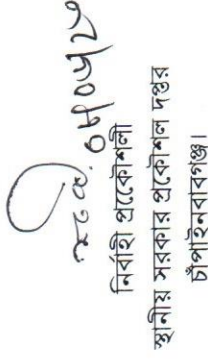 নির্বাহী প্রকৌশলী
স্থানীয় সরকার প্রকৌশল দপ্তর
চাঁপাইনবাবগঞ্জ।